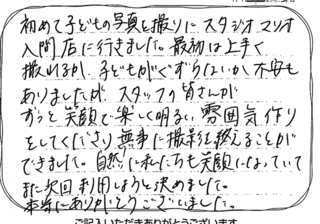 初めて子どもの写真を撮りに スタジオマリオ
入間店に行きました。最初は上手く
撮れるか、子どもがぐずらないか、不安も
ありましたが、スタッフの皆さんが
ずっと笑顔で楽しく明るい、雰囲気作り
をしてくださり無事に撮影を終えることが
できました。自然に私たちも笑顔になっていて
また次回利用しようと決めました。
本当にありがとうございました。
ご記入いただきありがとうございます